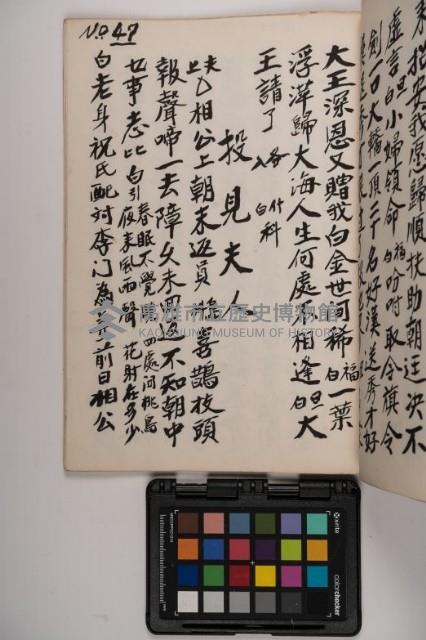 來招安我愿歸順扶助朝廷決不
虛言 旦白 小婦領命 福白 吩咐取令旗令
劍一口大轎一頂二千名好漢送秀才好
大王深恩又贈我白金世间稀 福白 一葉
浮萍歸大海人生何處不相逢 旦白 大
王請了 各入 什科白
投見夫人
夫上 乜相公上朝未返員 鵲喜鵲枝頭
報聲啼一去障久未回返不知朝中
乜事志比 白引 春眠不覺曉四處河桃鳥
夜來風雨聲 花財在多少
白老身祝氏配對李门為妻前日相公
No 47
高雄市立歷史博物館
KAOHSIUNG MUSEUM OF HISTORY
x-rite
colorchecker